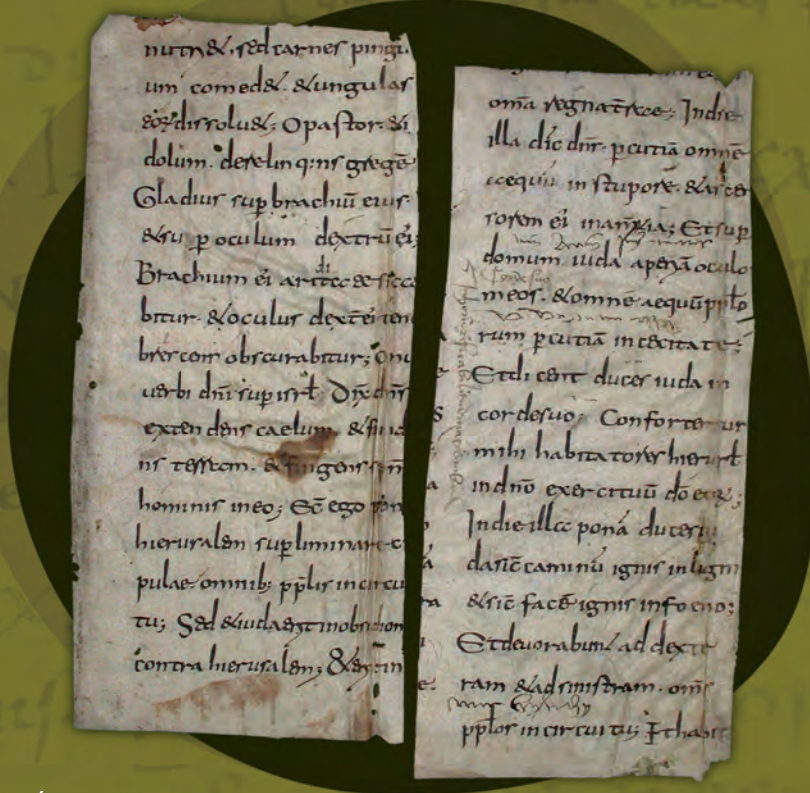 nutri&. sed carnes pingu
um comed&. &ungulas
eoꝝ dissolu&; O pastor. &i
dolum. derelinq:ns gregē
Gladius suꝑ brachiū eius
&su ꝑ oculum dextrū ei;
Brachium ei sicca
bitur. &oculus dext̄ ei ten
brescens obscurabitur; Onu
uerbi dn̄i suꝑ isrł. Dix̄ dn̄s
extendens caelum. &fund
ns terram. &fingens spm̄
hominis in eo; Ecē ego pon
hierusalem suꝑliminare c
pulae. omnib; ppłis in circu
tu; Sed &iuda erit in obsidion
contra hierusalem; &erit in
om̄a regna terrae; In die
illa dic̄ dn̄s. ꝑcutiā omnē
aequū in stuporē. &ascen
sorem ei in am̄tiā; Et suꝑ
domum iuda aperiā oculo
meos. &omnē aequū ppło
rum ꝑcutiā in cecitate;
Et dicent duces iuda in
corde suo; Confortentur
mihi habitatores hierusł
in dn̄o exercituū dō eoꝝ;
In die illa ponā duces iu
da sic̄ caminū ignis in lign
&sic̄ facē ignis in foeno;
Et deuorabun& ad dexte
ram &ad sinistram. om̄s
ppłos in circuitu; &habit